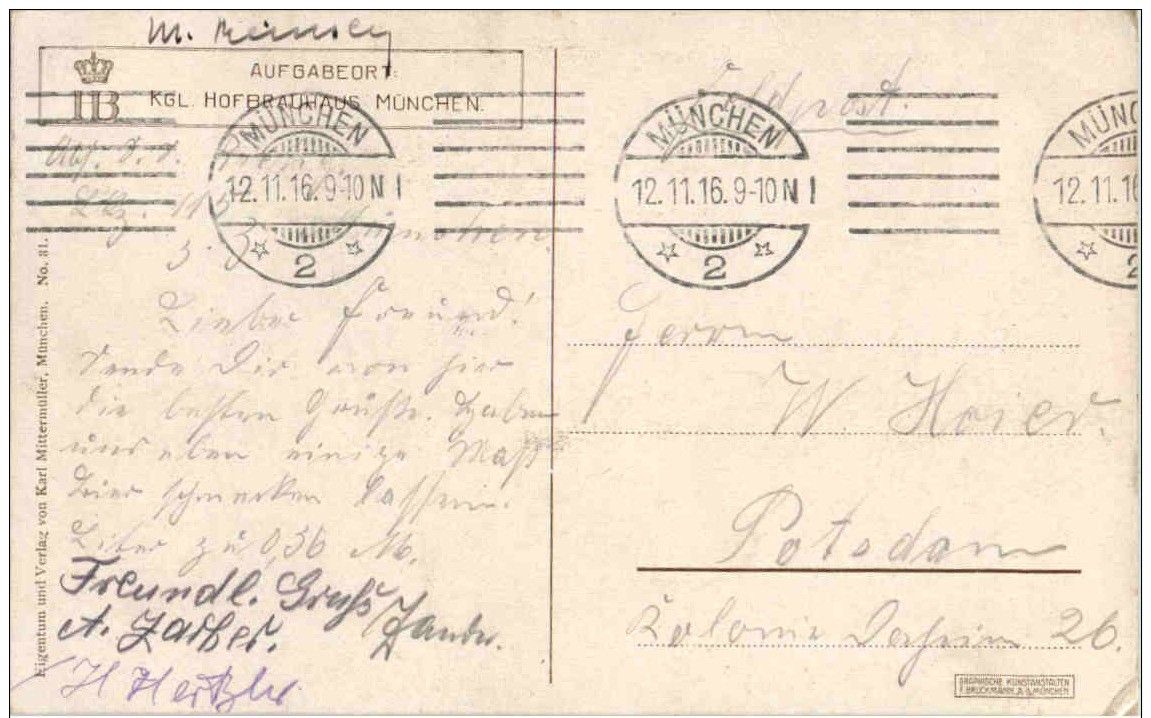 AUFGABEORT:
KGL. HOFBRÄUHAUS MÜNCHEN.
HB
MÜNCHEN
12.11.16.9-10 N I
2
MÜNCHEN
12.11.16.9-10 N I
2
MÜNC
12.11.16
2
Feldpost.
München.
Lieber Freund!
Sende Dir von hier
die besten Grüße. Haben
uns eben einige Maß
Bier schmecken lassen.
Liter zu 0,36 M.
Freundl. Gruß
A. Zarber.
H Hertzler
Herrn
W. Hoier.
Potsdam
Kolonie Daheim 26.
Eigentum und Verlag von Karl Mittermüller, München. No. 81.
GRAPHISCHE KUNSTANSTALTEN
F. BRUCKMANN A.G. MÜNCHEN